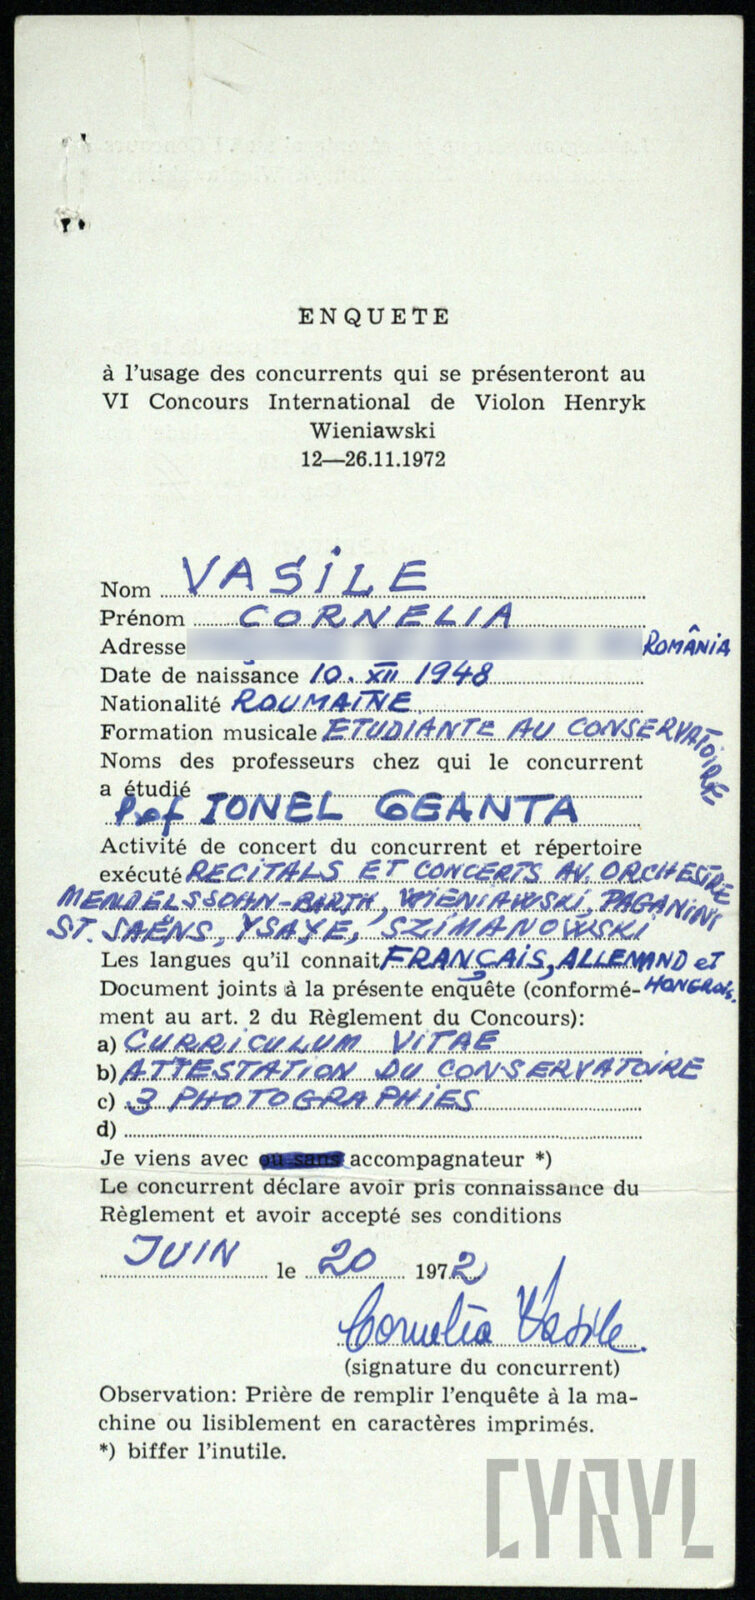 ENQUETE
à l'usage des concurrents qui se présenteront au
VI Concours International de Violon Henryk
Wieniawski
12—26.11.1972
Nom VASILE
Prénom CORNELIA
Adresse ROMÂNIA
Date de naissance 10. XII 1948
Nationalité ROUMAINE
Formation musicale ETUDIANTE AU CONSERVATOIRE
Noms des professeurs chez qui le concurrent
a étudié
Prof IONEL GEANTA
Activité de concert du concurrent et répertoire
exécuté RECITALS ET CONCERTS AV. ORCHESTRE
MENDELSSOHN-BARTH, WIENIAWSKI, PAGANINI
ST. SAËNS, YSAYE, SZIMANOWSKI
Les langues qu'il connait FRANÇAIS, ALLEMAND ET
HONGROIS.
Document joints à la présente enquête (conformé-
ment au art. 2 du Règlement du Concours):
a) CURRICULUM VITAE
b) ATTESTATION DU CONSERVATOIRE
c) 3 PHOTOGRAPHIES
d)
Je viens avec ou sans accompagnateur *)
Le concurrent déclare avoir pris connaissance du
Règlement et avoir accepté ses conditions
JUIN le 20 1972
Cornelia Vasile
(signature du concurrent)
Observation: Prière de remplir l'enquête à la ma-
chine ou lisiblement en caractères imprimés.
*) biffer l'inutile.
CYRYL